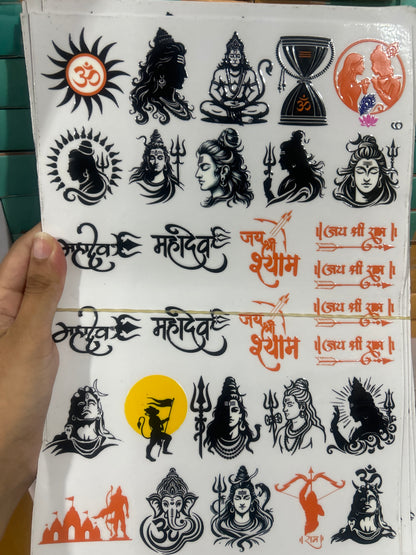 ॐ
ॐ
महादेव
महादेव
जय
श्री
श्याम
॥जय श्री राम॥
॥जय श्री राम॥
महादेव
महादेव
जय
श्री
श्याम
॥जय श्री राम॥
॥जय श्री राम॥
ॐ
॥राम॥
ॐ